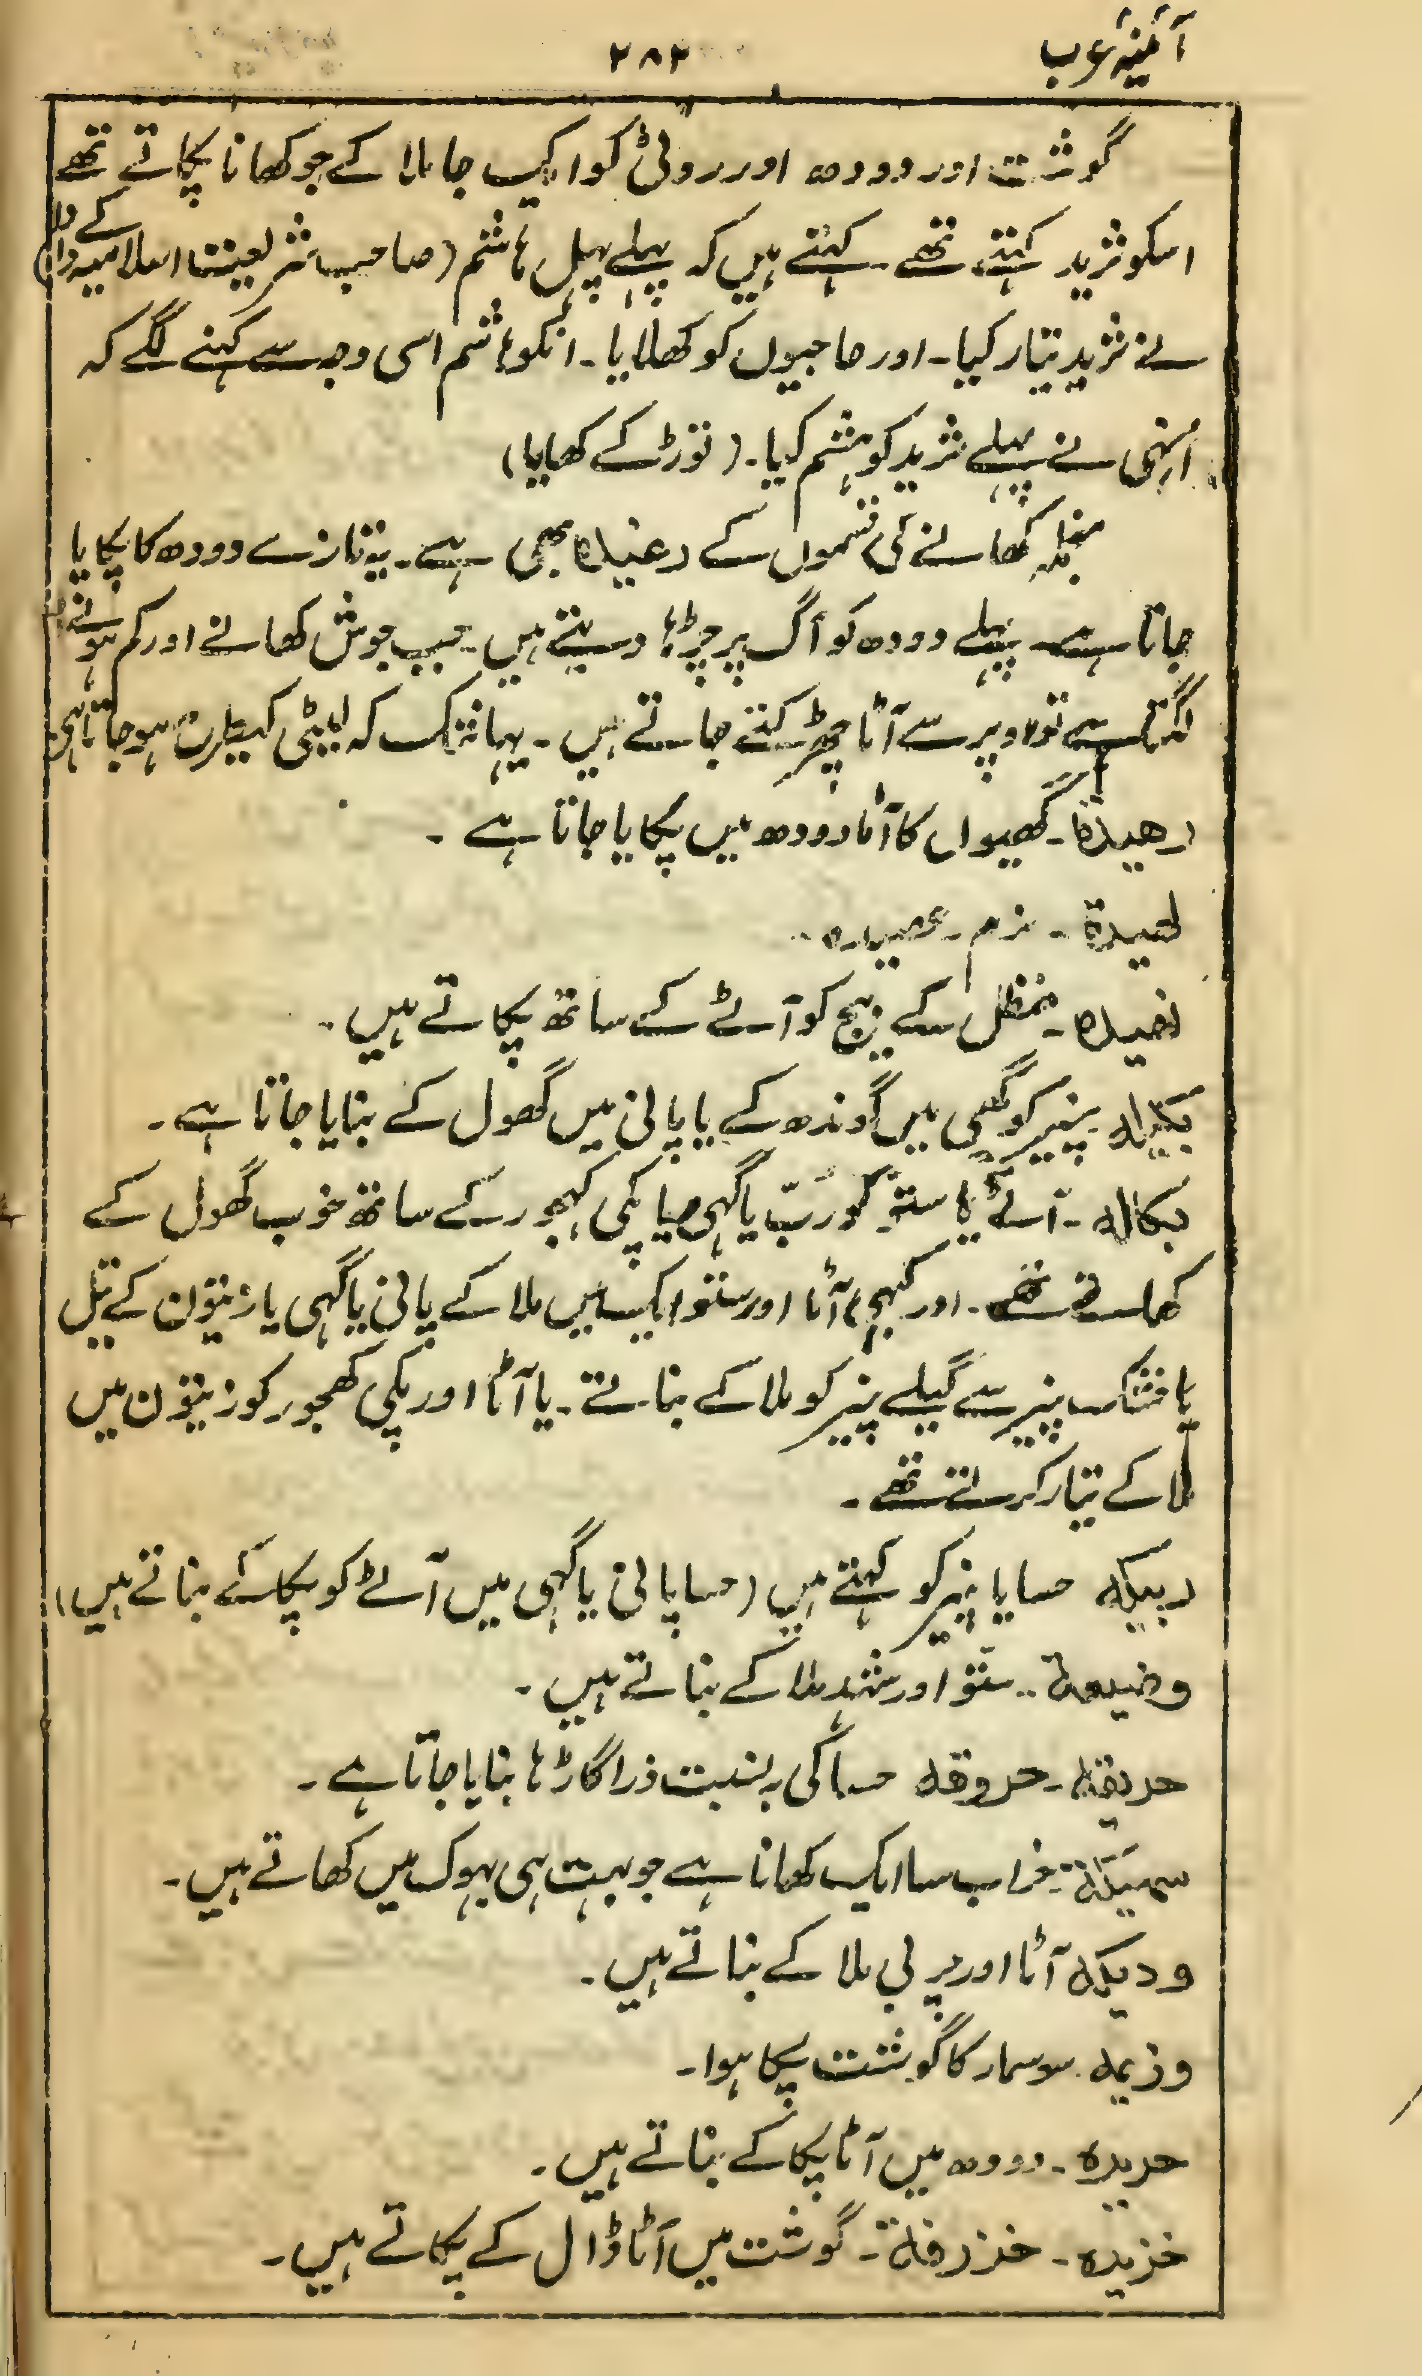 آئینۂ عرب
۲۸۲
گوشت اور دودھ اور روٹی کو ایک جا ملا کے جو کھانا پکاتے تھے
اسکو ثرید کہتے تھے۔ کہتے ہیں کہ پہلے پہل ہاشم (صاحب شریعت اسلامیہ کے دادا)
نے ثرید تیار کیا۔ اور حاجیوں کو کھلایا۔ انکو ہاشم اسی وجہ سے کہنے لگے کہ
اُنہی نے پہلے ثرید کو ہشم کیا۔ (توڑ کے کھایا)
منجملہ کھانے کی قسموں کے رغیدہ بھی ہے۔ یہ تازے دودھ کا پکایا
جاتا ہے۔ پہلے دودھ کو آگ پر چڑہا دیتے ہیں۔ جب جوش کھانے اور کم ہونے
لگتا ہے تو اوپر سے آٹا چھڑکتے جاتے ہیں۔ یہانتک کہ لیپٹی کیطرح ہوجاتا ہی
رھیدۃ۔ گھیوں کا آٹا دودھ میں پکایا جاتا ہے۔
لھیدۃ۔ نرم۔ عصیدہ۔
۔ حنظل کے بیج کو آٹے کے ساتھ پکاتے ہیں۔
بکیلہ پنیر کو گھی میں گوندھ کے یا پانی میں گھول کے بنایا جاتا ہے۔
بکالہ۔ آٹے یا ستو کو رُبّ یا گہی یا پکی کہجور کے ساتھ خوب گھول کے
کھاتے تھے۔ اور کبھی آٹا اور ستو ایک میں ملا کے پانی یا گہی یا زیتون کے تیل
یا خشک پنیر سے گیلے پنیر کو ملا کے بناتے۔ یا آٹا اور پکی کھجور کو زیتون میں
ملا کے تیار کرتے تھے۔
ربیکہ حسا یا پنیر کو کہتے ہیں (حسا پانی یا گہی میں آٹے کو پکا کے بناتے ہیں)
وضیعۃ۔ ستّو اور شہد ملا کے بناتے ہیں۔
حریقہ۔ حروقہ حسا کی بہ نسبت ذرا گاڑہا بنایا جاتا ہے۔
خراب سا ایک کھانا ہے جو بہت ہی بہوک میں کھاتے ہیں۔
ودیکہ آٹا اور چربی ملا کے بناتے ہیں۔
وزیمہ۔ سوسمار کا گوشت پکا ہوا۔
حریرہ۔ دودھ میں آٹا پکا کے بناتے ہیں۔
خزیرہ۔ خنزرفلۃ۔ گوشت میں آٹا ڈال کے پکاتے ہیں۔